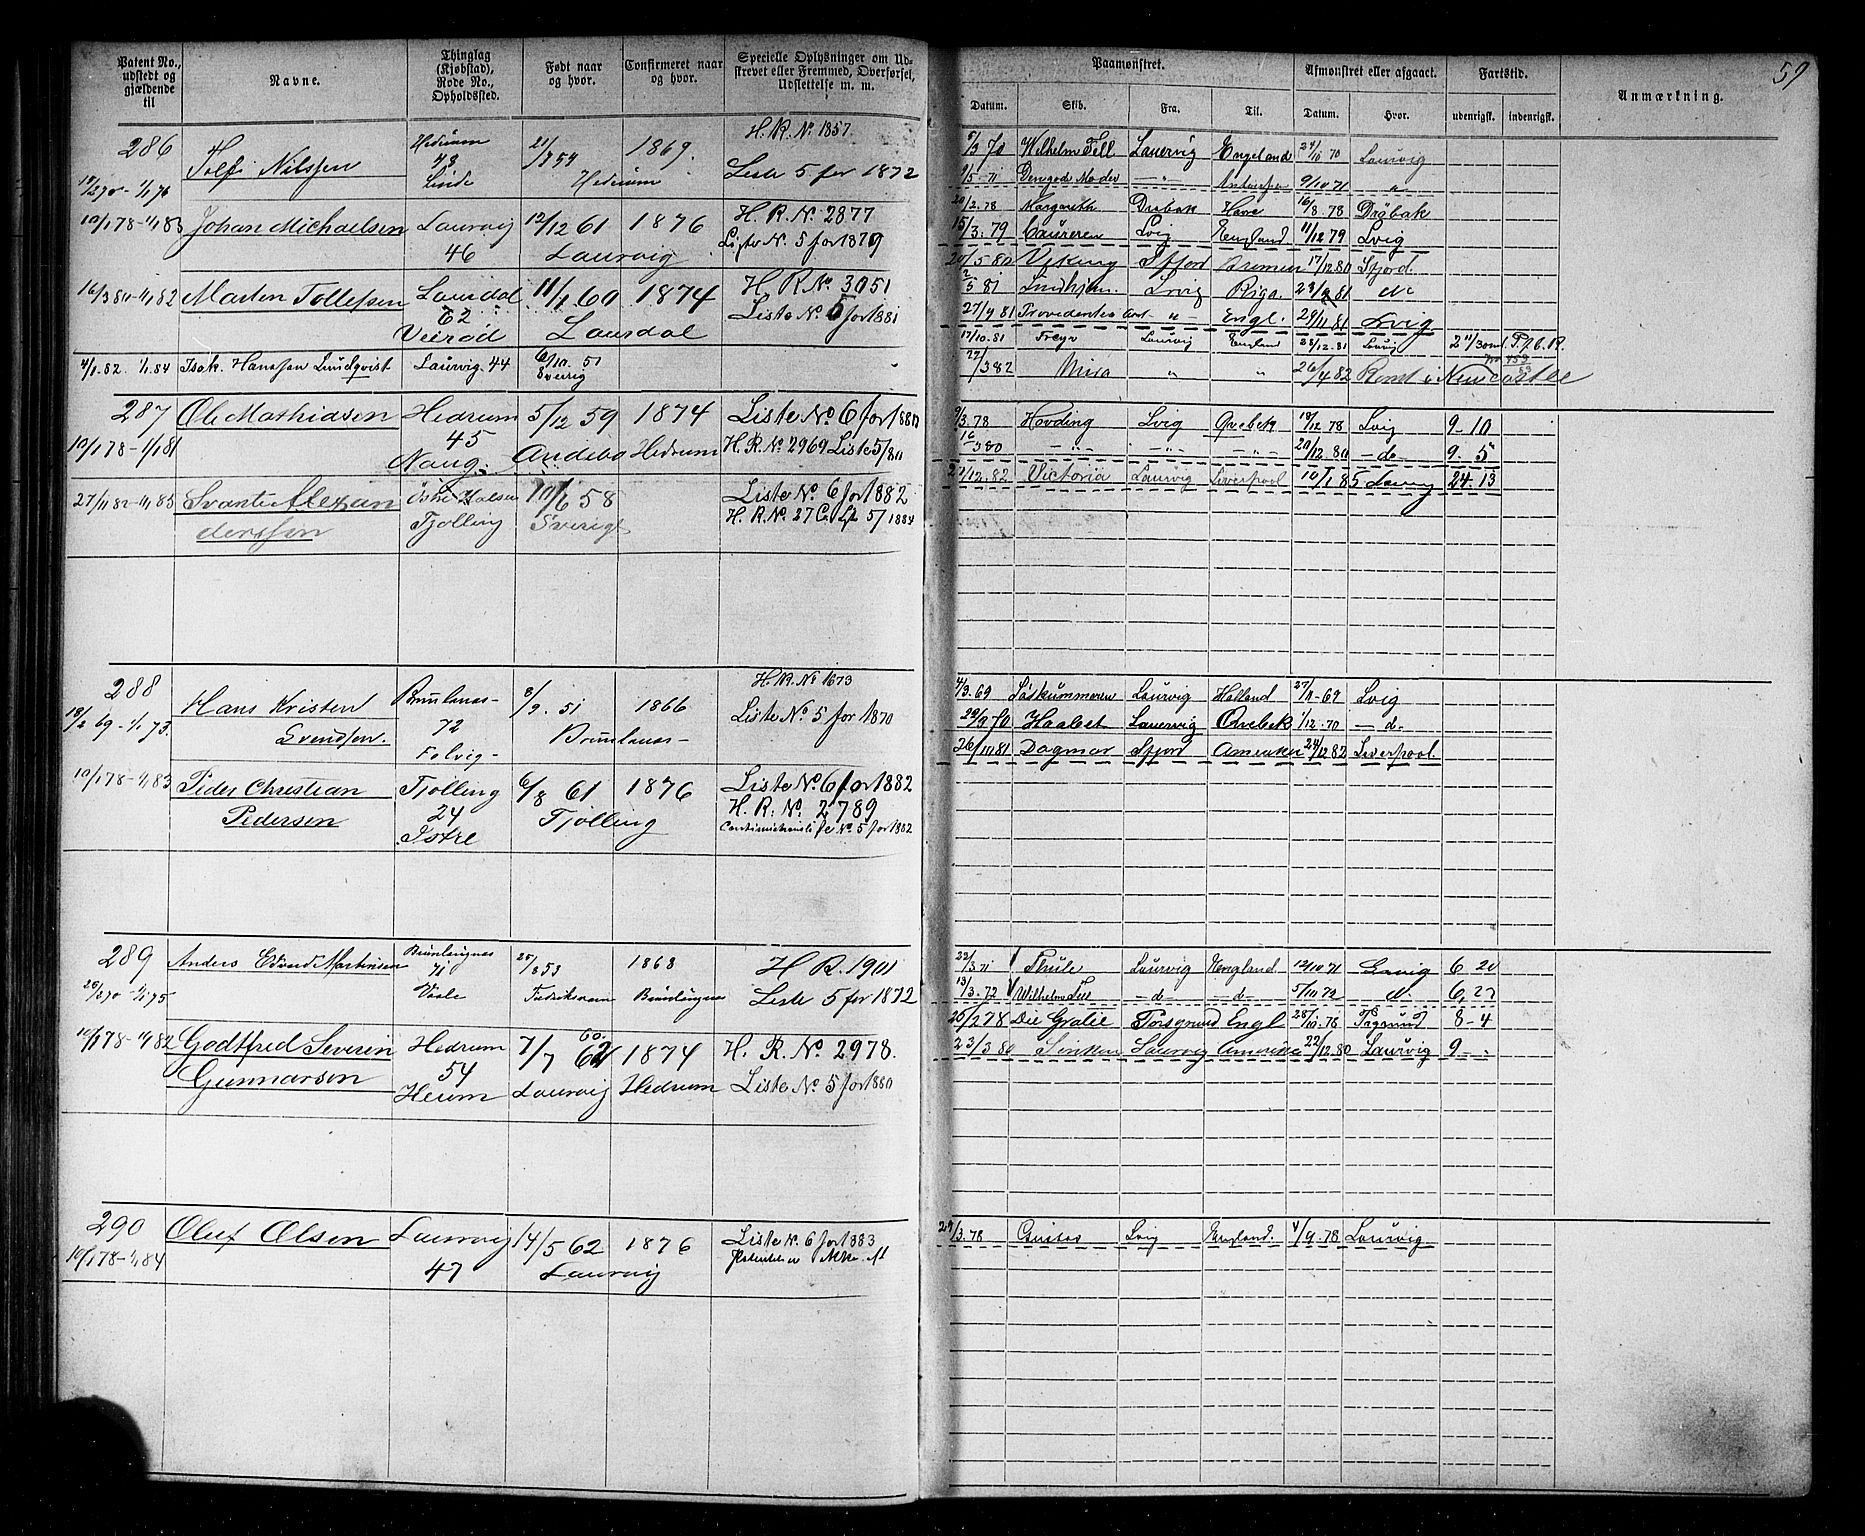 59
Patent No., udstedt og gjældende til
Navne.
Thinglag (Kjøbstad), Rode No., Opholdssted.
Født naar og hvor.
Confirmeret naar og hvor.
Specielle Oplysninger om Udskrevet eller Fremmed, Overførsel, Udslettelse m. m.
Paamønstret.
Datum. Skib. Fra. Til.
Afmønstret eller afgaaet.
Datum. Hvor.
Fartstid.
udenrigsk. indenrigsk.
Anmærkning.
286 Nilssen Hedrum 48 Linde 21/ 54 Hedrum 1869. H. R. No 1857. Liste 5 for 1872
10/1 78 - 1/1 83 Johan Michaelsen Laurvig 46 12/12 61 Laurvig 1876 H. R. No. 2877
Liste No. 5 for 1879
16/3 80 - 1/1 82 Marten Tollefsen Laurdal 62 Veierød 11/1 60 Laurdal 1874 H. R. No. 3051
Liste No. 5 for 1881
4/1. 82. 1/1. 84 Isak. Hanssen Lundqvist Laurvig. 44 6/10. 51 Sverig
5/3 70 Wilhelm Tell Laurvig Engeland 24/10 70 Laurvig
1/5. 71 Moder - " - Antwerpen 9/10 71 "
20/2. 78 Margareth Drøbak Havre 16/8. 78 Drøbak
15/3. 79 Laureren Lvig England 11/12 79 Lvig
20/5 80 Viking Sfjord Bremen 17/12 80 Sfjord
5 81 Lindhjem. Lvig Riga. 81 do
27/9 81 Providentia - " - Engl. 29/11 81 Lvig
17/10. 81 Freyr Laurvig England 28/12. 81 Laurvig
27/3 82 Mira " " 26/4 82 Rømt i Newcastle
287 Ole Mathiasen Hedrum 45 Naug. 5/12 59 Andebo 1874 Hedrum Liste No. 6 for 1880
10/1 78 - 1/1 81 H. R. No. 2969 Liste 5/80
27/11 82 - 1/1 85 Svante Alexanderssen Østre Halsen Tjølling 10/6 58 Sverige Liste No. 6 for 1882
9/3. 78 Høvding Lvig Qvebek 18/12 78 Lvig 9 - 10
16/3 80 - " - - " - - " - 20/12. 80 - do - 9. 5
21/12. 82 Victoria Laurvig Liverpool 10/1 85 24. 13
288 Hans Kristen Svendsen. Brunlanæs - 72 Folvig - 8/9. 51 Brunlanæs - 1866 H. R. No 1673
18/2 69 - 1/1 73. Liste No. 5 for 1870
10/1 78 - 1/1 83 Peder Christian Pedersen Tjølling 24 Istre 6/8 61 Tjølling 1876 Liste No. 6 for 1882
H. R. No. 2789
4/3. 69 Laurvig Holland 27/ - 69 Lvig
29/9 70 Haabet Laurvig Qvebek 1/12. 70 - d -
26/10 81 Dagmar Sfjord Amerika 24/12 82 Liverpool.
289 Anders Edvard Martinsen Brunlangnæs 71 Vaale 25/8 53 Fredriksværn 1868 Brunlangnæs H R. 1901
26/2 70 - 1/1 75 Liste 5 for 1872
10/1 78 - 1/1 82 Godtfred Severin Gunnarsen Hedrum 54 Heum 7/7 62 60. Laurvig 1874 Hedrum H. R. No. 2978.
Liste No. 5 for 1880
22/3 71 Thule Laurvig England 12/10 71 Lavig 6 20
13/3. 72 Wilhelm Tell - d - - d - 5/10 72 d. 6, 27
25/2 78 Die Grazie Porsgrund Engl 25/10. 78 Psgrund 8 - 4
23/3 80 Laurvig Amerika 22/12. 80 Laurvig 9 -
290 Oluf Olsen Laurvig 47 14/5 62 Laurvig 1876 Liste No. 6 for 1883
10/1 78 - 1/1 84
29/3. 78 Lvig England. 4/9. 78 Laurvig